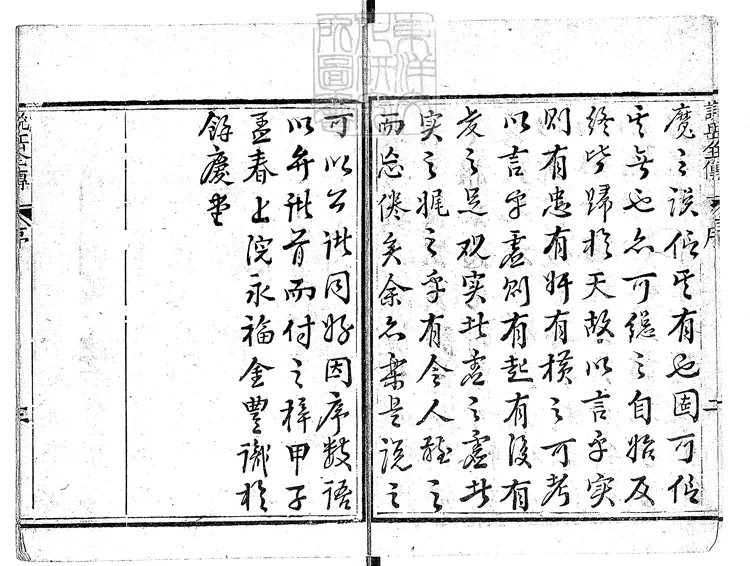 說岳全傳 序 二
魔之說信其有也固可信
其無也亦可總之自始及
終皆歸於天故以言乎实
則有忠有奸有橫之可考
以言乎虛則有起有復有
變之足观实者虛之虛者
实之娓娓乎有令人聽之
而忘倦矣余亦樂是說之
可以公諸同好因序數語
以弁諸首而付之梓甲子
孟春上浣永福金豐識於
餘慶堂
說岳全傳 序